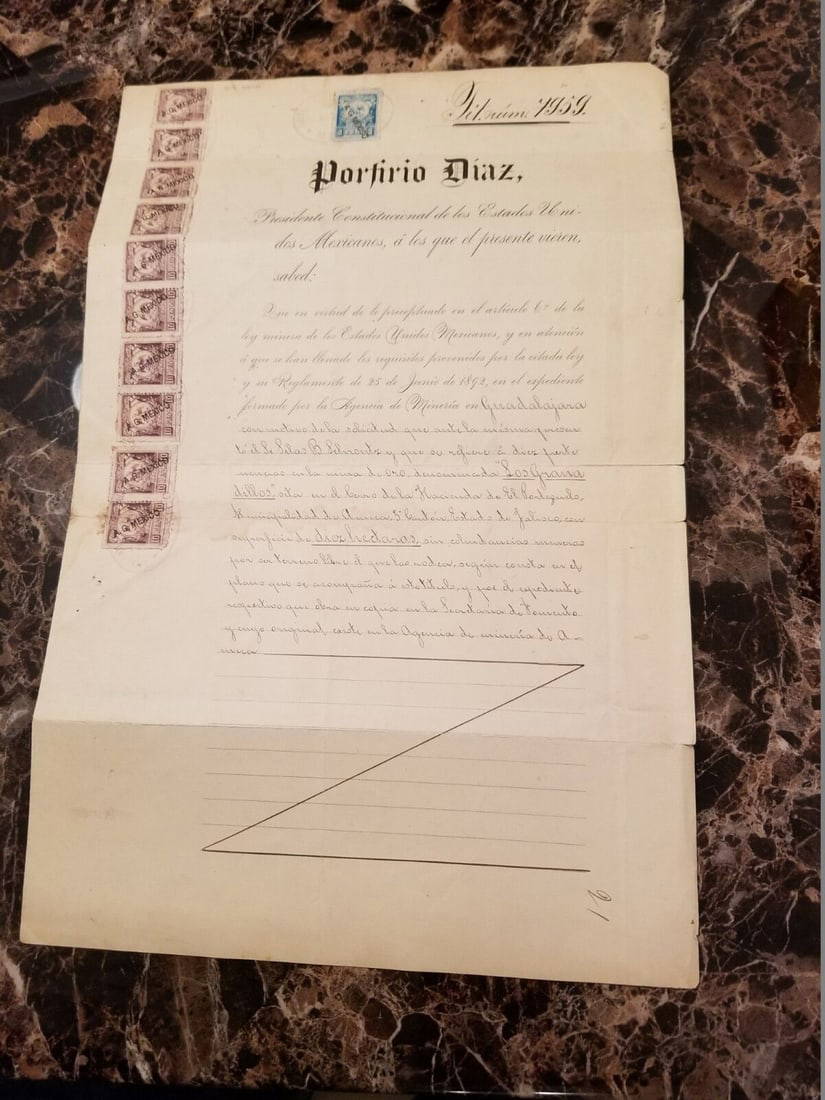 Tít. núm. 1959.
Porfirio Díaz,
Presidente Constitucional de los Estados Uni-
dos Mexicanos, á los que el presente vieren,
sabed:
Que en virtud de lo preceptuado en el artículo 6º de la
ley minera de los Estados Unidos Mexicanos, y en atención
á que se han llenado los requisitos prevenidos por la citada ley
y su Reglamento de 25 de Junio de 1892, en el expediente
formado por la Agencia de Minería en Guadalajara
con motivo de la solicitud que ante la misma presen
tó el Sr. Silas B. y que se refiere á diez perte
nencias en la mina de oro, denominada "Los Grana
dillos," sita en el Cerro de la Hacienda de El
Municipalidad de Ameca, 5º Cantón, Estado de Jalisco, con
superficie de diez hectaras, sin colindancias mineras
por ser terreno libre el que las rodea, según consta en el
plano que se acompaña á este título, y por el expediente
respectivo que obra en copia en la Secretaría de Fomento
y cuyo original existe en la Agencia de minería de A-
meca
A. G. MEXICO
A. G. MEXICO
A. G. MEXICO
A. G. MEXICO
A. G. MEXICO
A. G. MEXICO
A. G. MEXICO
A. G. MEXICO
A. G. MEXICO
A. G. MEXICO